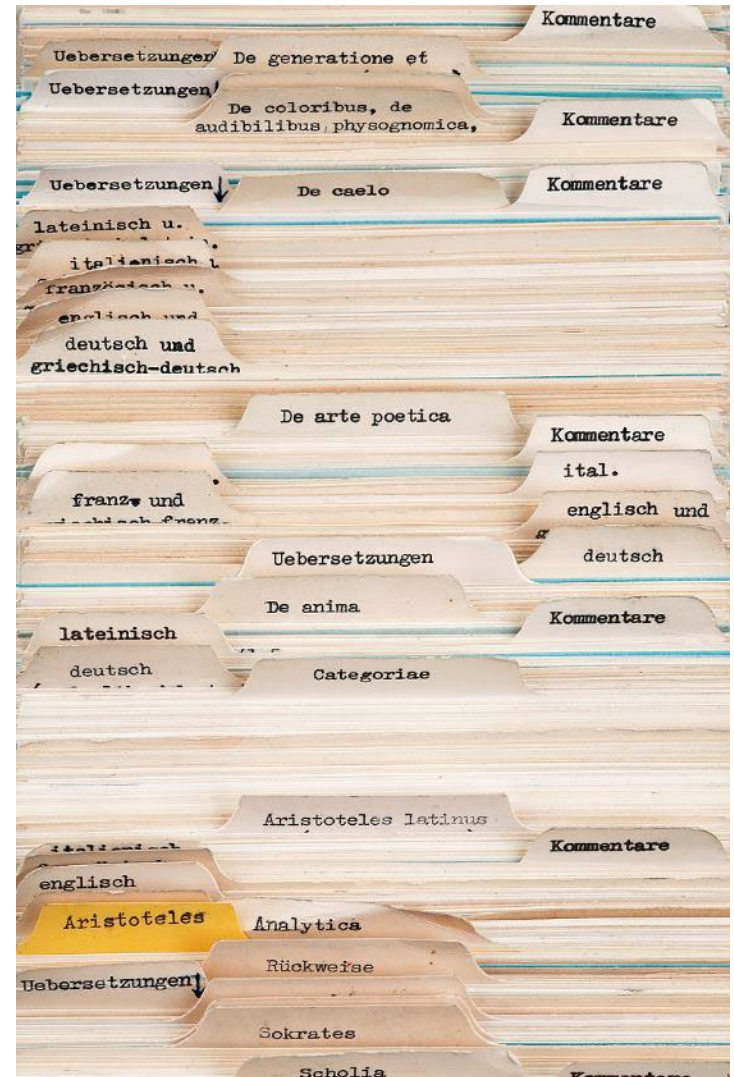 Kommentare
Uebersetzungen De generatione et
Uebersetzungen
De coloribus, de
audibilibus, physognomica,
Kommentare
Uebersetzungen
De caelo
Kommentare
lateinisch u.
italienisch u
französisch u.
englisch und
deutsch und
griechisch-deutsch
De arte poetica
Kommentare
ital.
franz. und
englisch und
Uebersetzungen
deutsch
De anima
Kommentare
lateinisch
deutsch
Categoriae
Aristoteles latinus
italienisch
Kommentare
englisch
Aristoteles
Analytica
Rückweise
Uebersetzungen
Sokrates
Scholia
Kommentare